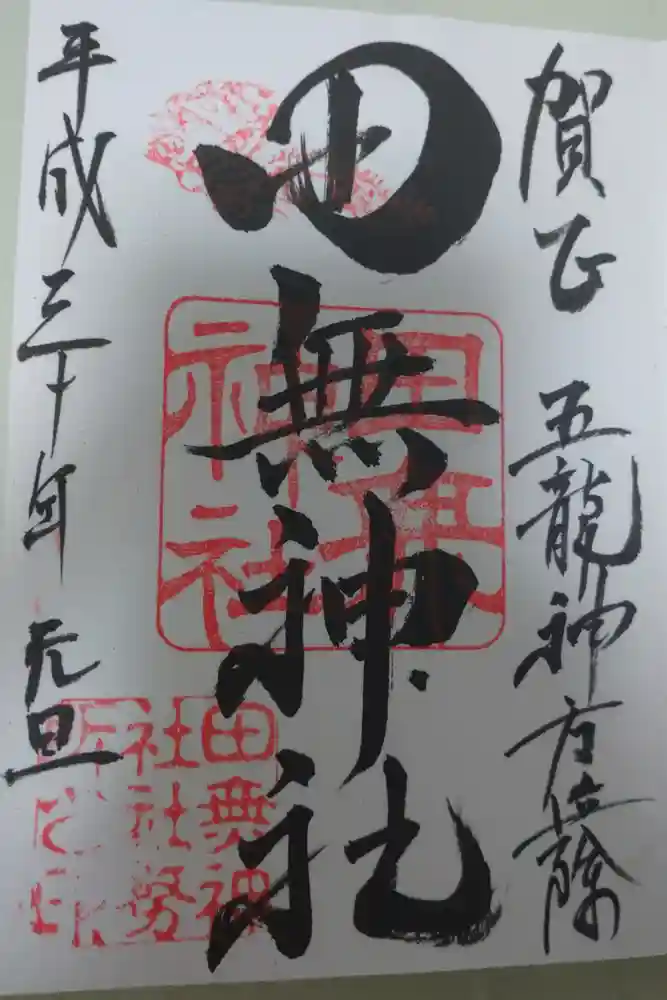 賀正 五龍神方位除
田無神社
平成三十年 元旦
田無神社
田無神社社務所之印